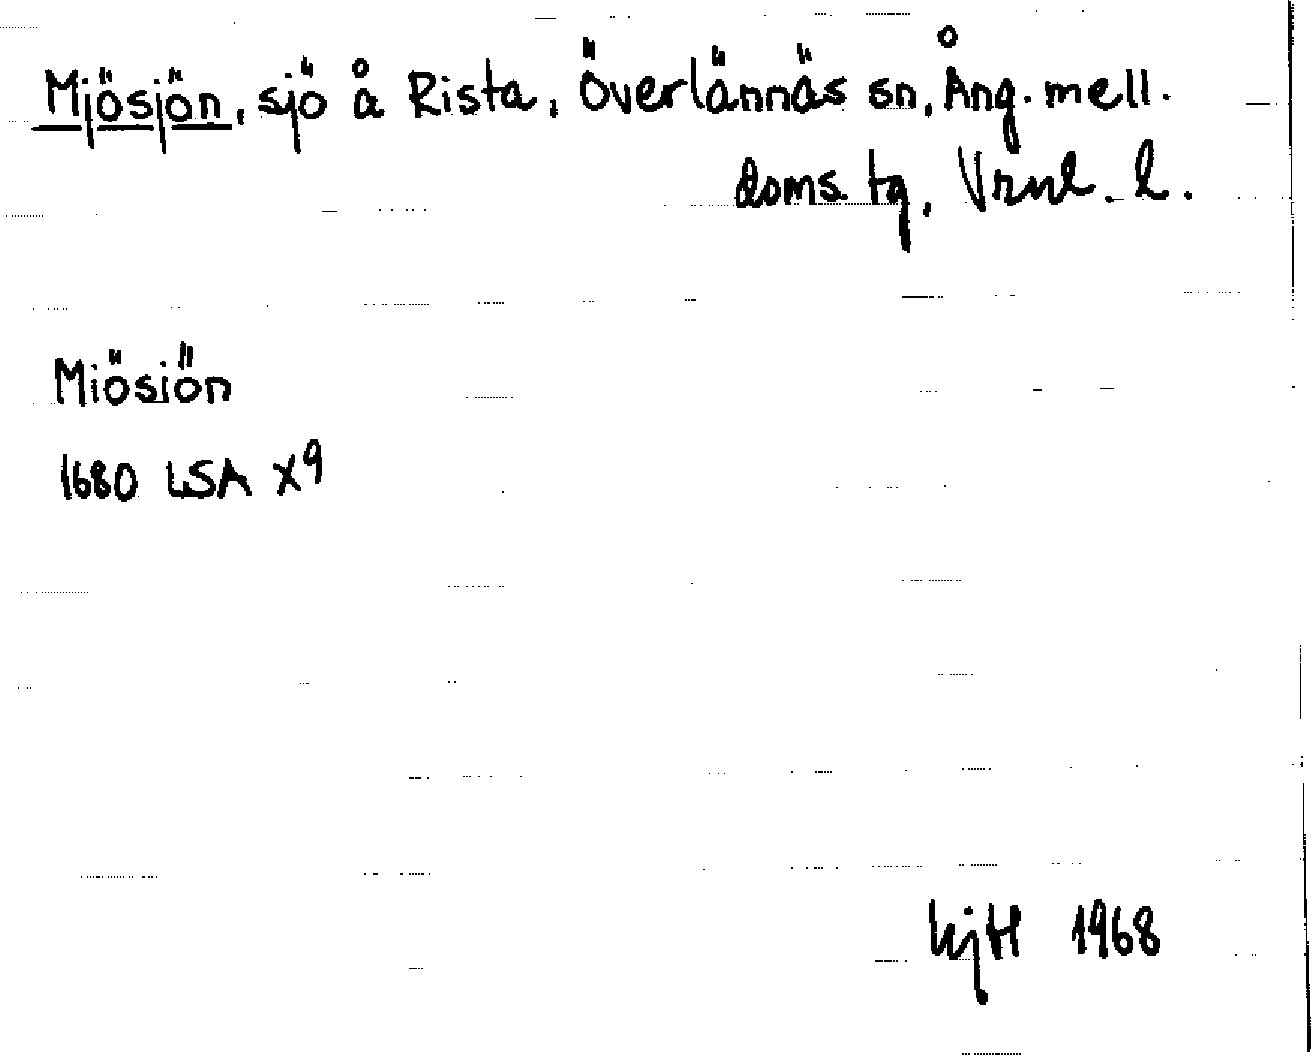 Mjösjön, sjö å Rista, Överlännäs sn, Ång. mell.
doms. tg, Vrnl. l.
Miösiön
1680 LSA X9
1968